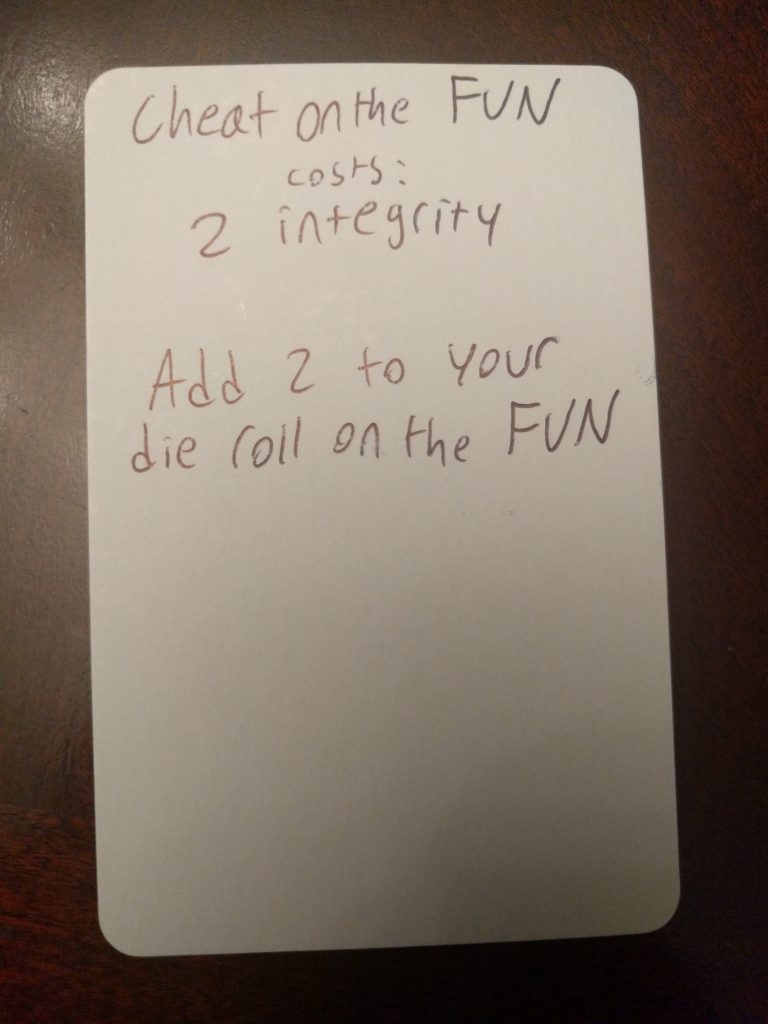 Cheat on the FUN
costs:
2 integrity
Add 2 to your
die roll on the FUN